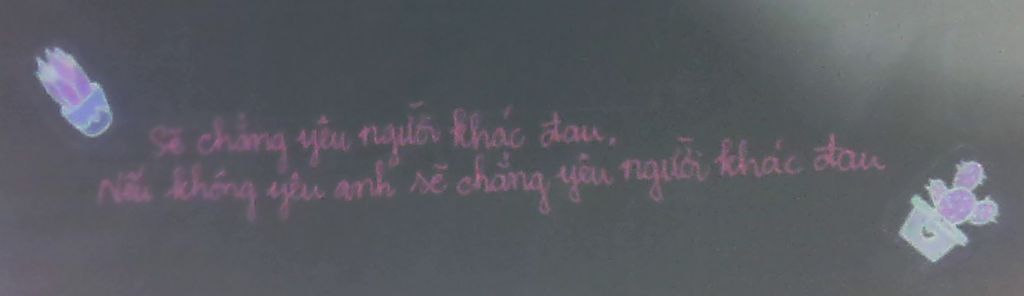 Sẽ chẳng yêu người khác đau,
Nếu không yêu anh sẽ chẳng yêu người khác đau